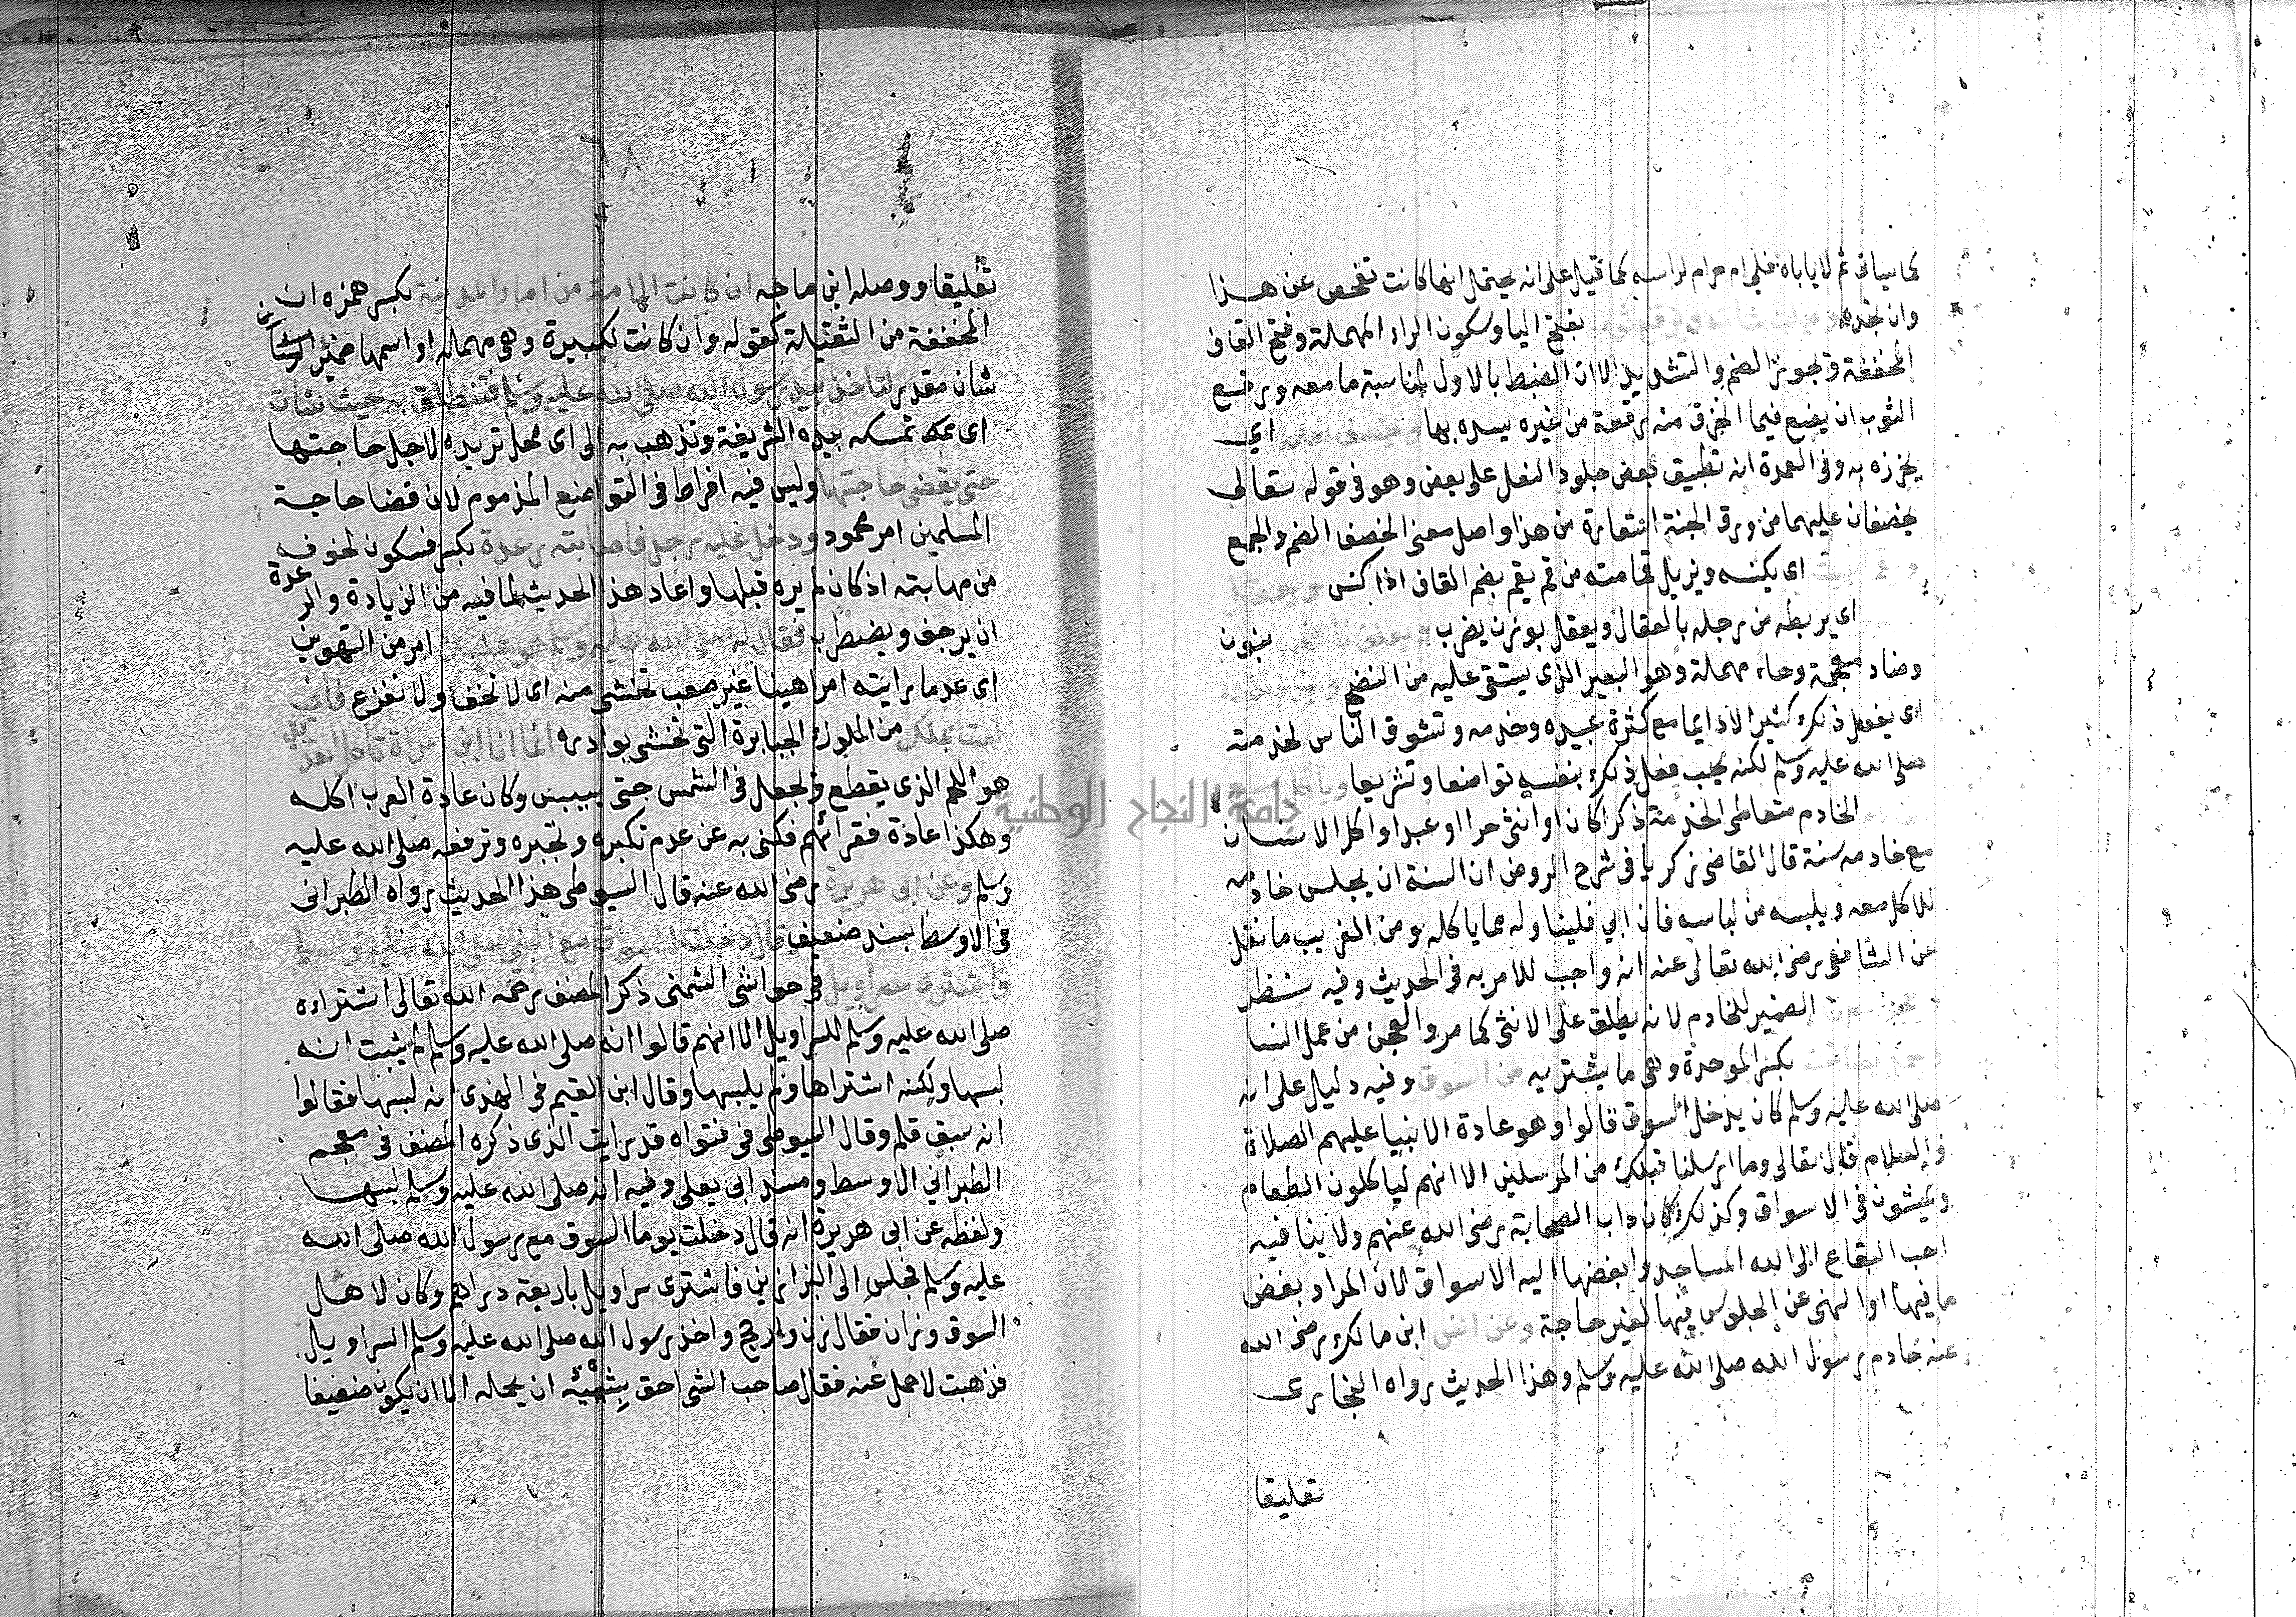 كما سياتى ثم لا ياباه فلى ام حرام لراسه كما قيل على انه يحتمل انها كانت تفحص عن هذا
وان تجده ويرقع ثوبه بفتح اليا وسكون الراء المهملة وفتح القاف
المخففة ويجوز الضم والتشديد الا ان الضبط بالاول لمناسبة ما معه ويرقع
الثوب ان يضع فيما انخرق منه رقعة من غيره يسده بها ويخصف نعله اي
يخرزه به وفى العمدة انه تطبيق بعض جلود النعل على بعض وهو فى قوله تعالى
يخصفان عليهما من ورق الجنة استعارة من هذا واصل معنى الخصف الضم والجمع
ويقم البيت اى يكنسه ويزيل قمامته من قم يقم بضم القاف اذا كنس ويعقل
اى يربطه من رجله بالعقال ويعقل بوزن يضرب ويعلف ناضحه بنون
وضاد معجمة وحاء مهملة وهو البعير الذى يستقى عليه من النضح ويخدم نفسه
اى يفعل ذلك كثيرا لا دايما مع كثرة عبيده وخدمه وتشوق الناس لخدمته
صلى الله عليه وسلم لكنه يحب فعل ذلك بنفسه تواضعا وتشريعا وياكل مع
الخادم متعاطى الخدمة ذكرا كان او انثى حرا او عبدا واكل الانسان
مع خادمه سنة قال القاضى زكريا فى شرح الروض ان السنة ان يجلس خادمه
للاكل معه ويلبسه من لباسه فان ابي فليناوله مما ياكله ومن الغريب ما نقل
عن الشافعى رضى الله تعالى عنه انه واجب للامر به فى الحديث وفيه نظر
ويعجن معها الضمير للخادم لانه يطلق على الانثى كما مر والعجن من عمل النسا
ويحمل بضاعته بكسر الموحدة وهى ما يشتريه من السوق وفيه دليل على انه
صلى الله عليه وسلم كان يدخل السوق قالوا وهو عادة الانبيا عليهم الصلاة
والسلام قال تعالى وما ارسلنا قبلك من المرسلين الا انهم لياكلون الطعام
ويمشون فى الاسواق وكذلك كان داب الصحابة رضى الله عنهم ولا ينافيه
احب البقاع الى الله المساجد وابغضها اليه الاسواق لان المراد بغض
ما فيها او النهى عن الجلوس فيها لغير حاجة وعن انس ابن مالك رضى الله
عنه خادم رسول الله صلى الله عليه وسلم وهذا الحديث رواه البخارى
تعليقا
٦٨
تعليقا ووصله ابن ماجه ان كانت الامة من اماء المدينة بكسر همزه ان
المخففة من الثقيلة كقوله وان كانت لكبيرة وهى مهملة او اسمها ضمير
شان مقدر لتاخذ بيد رسول الله صلى الله عليه وسلم فتنطلق به حيث شات
اى بمكه تمسكه بيده الشريفة وتذهب به الى اى محل تريده لاجل حاجتها
حتى يقضى حاجتها وليس فيه افراط فى التواضع المذموم لان قضا حاجة
المسلمين امر محمود ودخل عليه رجل فاصابته رعدة بكسر فسكون لخوفه
من مهابته اذ كان لم يره قبلها واعاد هذا الحديث لما فيه من الزيادة والرعدة
ان يرجف ويضطرب فقال له صلى الله عليه وسلم هو عليك امر من التهوين
اى عد ما رايته امرا هينا غير صعب تخشى منه اى لا تخف ولا تفزع فاني
لست بملك من الملوك الجبابرة التى تخشى بوادره انما انا ابن امراة تاكل القديد
هو اللحم الذى يقطع ويجعل فى الشمس حتى ييبس وكان عادة العرب اكله
وهكذا عادة فقرائهم فكنى به عن عدم تكبره وتجبره وترفعه صلى الله عليه
وسلم وعن ابى هريرة رضى الله عنه قال السيوطى هذا الحديث رواه الطبرانى
فى الاوسط بسند ضعيف قال دخلت السوق مع النبى صلى الله عليه وسلم
فاشترى سراويل فى حواشى الشمنى ذكر المصنف رحمه الله تعالى اشتراءه
صلى الله عليه وسلم للسراويل الا انهم قالوا انه صلى الله عليه وسلم لم يثبت انه
لبسها ولكنه اشتراها ولم يلبسها وقال ابن القيم فى الهدى انه لبسها فقالوا
انه سبق قلم وقال السيوطى فى فتواه قد رايت الذى ذكره المصنف فى معجم
الطبراني الاوسط ومسند ابى يعلى وفيه انه صلى الله عليه وسلم لبسها
ولفظه عن ابى هريرة انه قال دخلت يوما السوق مع رسول الله صلى الله
عليه وسلم فجلس الى البزازين فاشترى سراويل باربعة دراهم وكان لاهل
السوق وزان فقال زن وارجح واخذ رسول الله صلى الله عليه وسلم السراويل
فذهبت لاحمل عنه فقال صاحب الشى احق بشيئه ان يحمله الا ان يكون ضعيفا
جامعة النجاح الوطنية